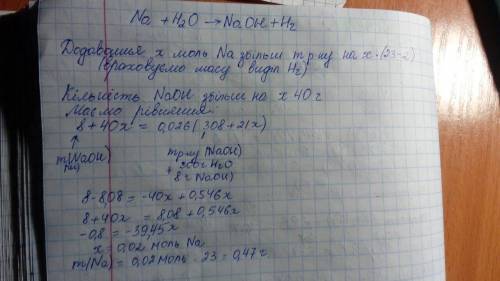 Na + H2O → NaOH + H2
Додавання x моль Na збільш m р-ну на x·(23-2)
(враховуємо масу виділ H2)
Кількість NaOH збільш на x 40 г
Маємо рівняння
8 + 40x = 0,026(308 + 21x)
↑
m(NaOH) m р-ну (NaOH)
300г H2O
8 г NaOH)
8 - 8,08 = -40x + 0,546x
8 + 40x = 8,08 + 0,546x
-0,8 = -39,45x
x = 0,02 моль Na
m(Na) = 0,02 моль · 23 = 0,47 г